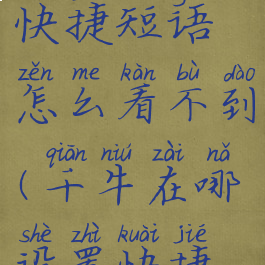 快捷短语
zěn me kàn bù dào
怎么看不到
qiān niú zài nǎ
(千牛在哪
shè zhì kuài jié
设置快捷